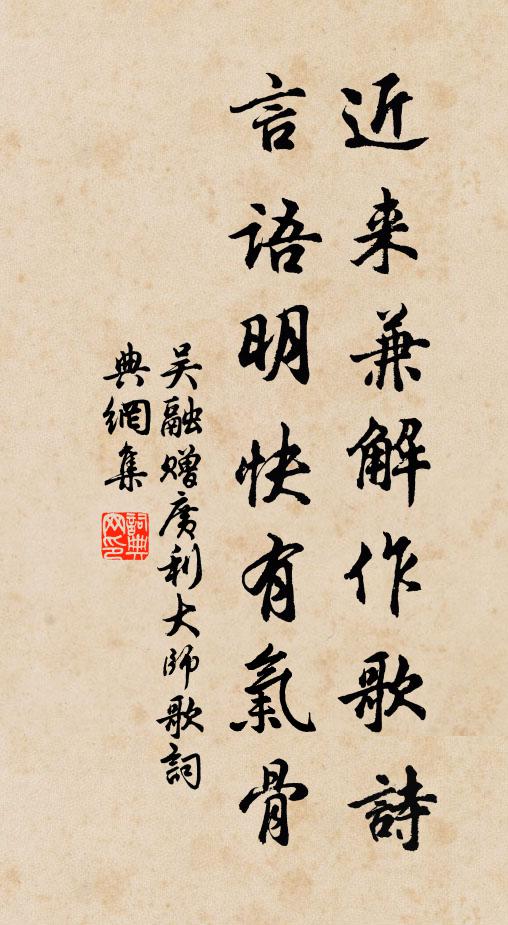 近来兼解作歌詩
言語明快有氣骨
吴融赠廣利大師歌詞
典網集
詞典網印